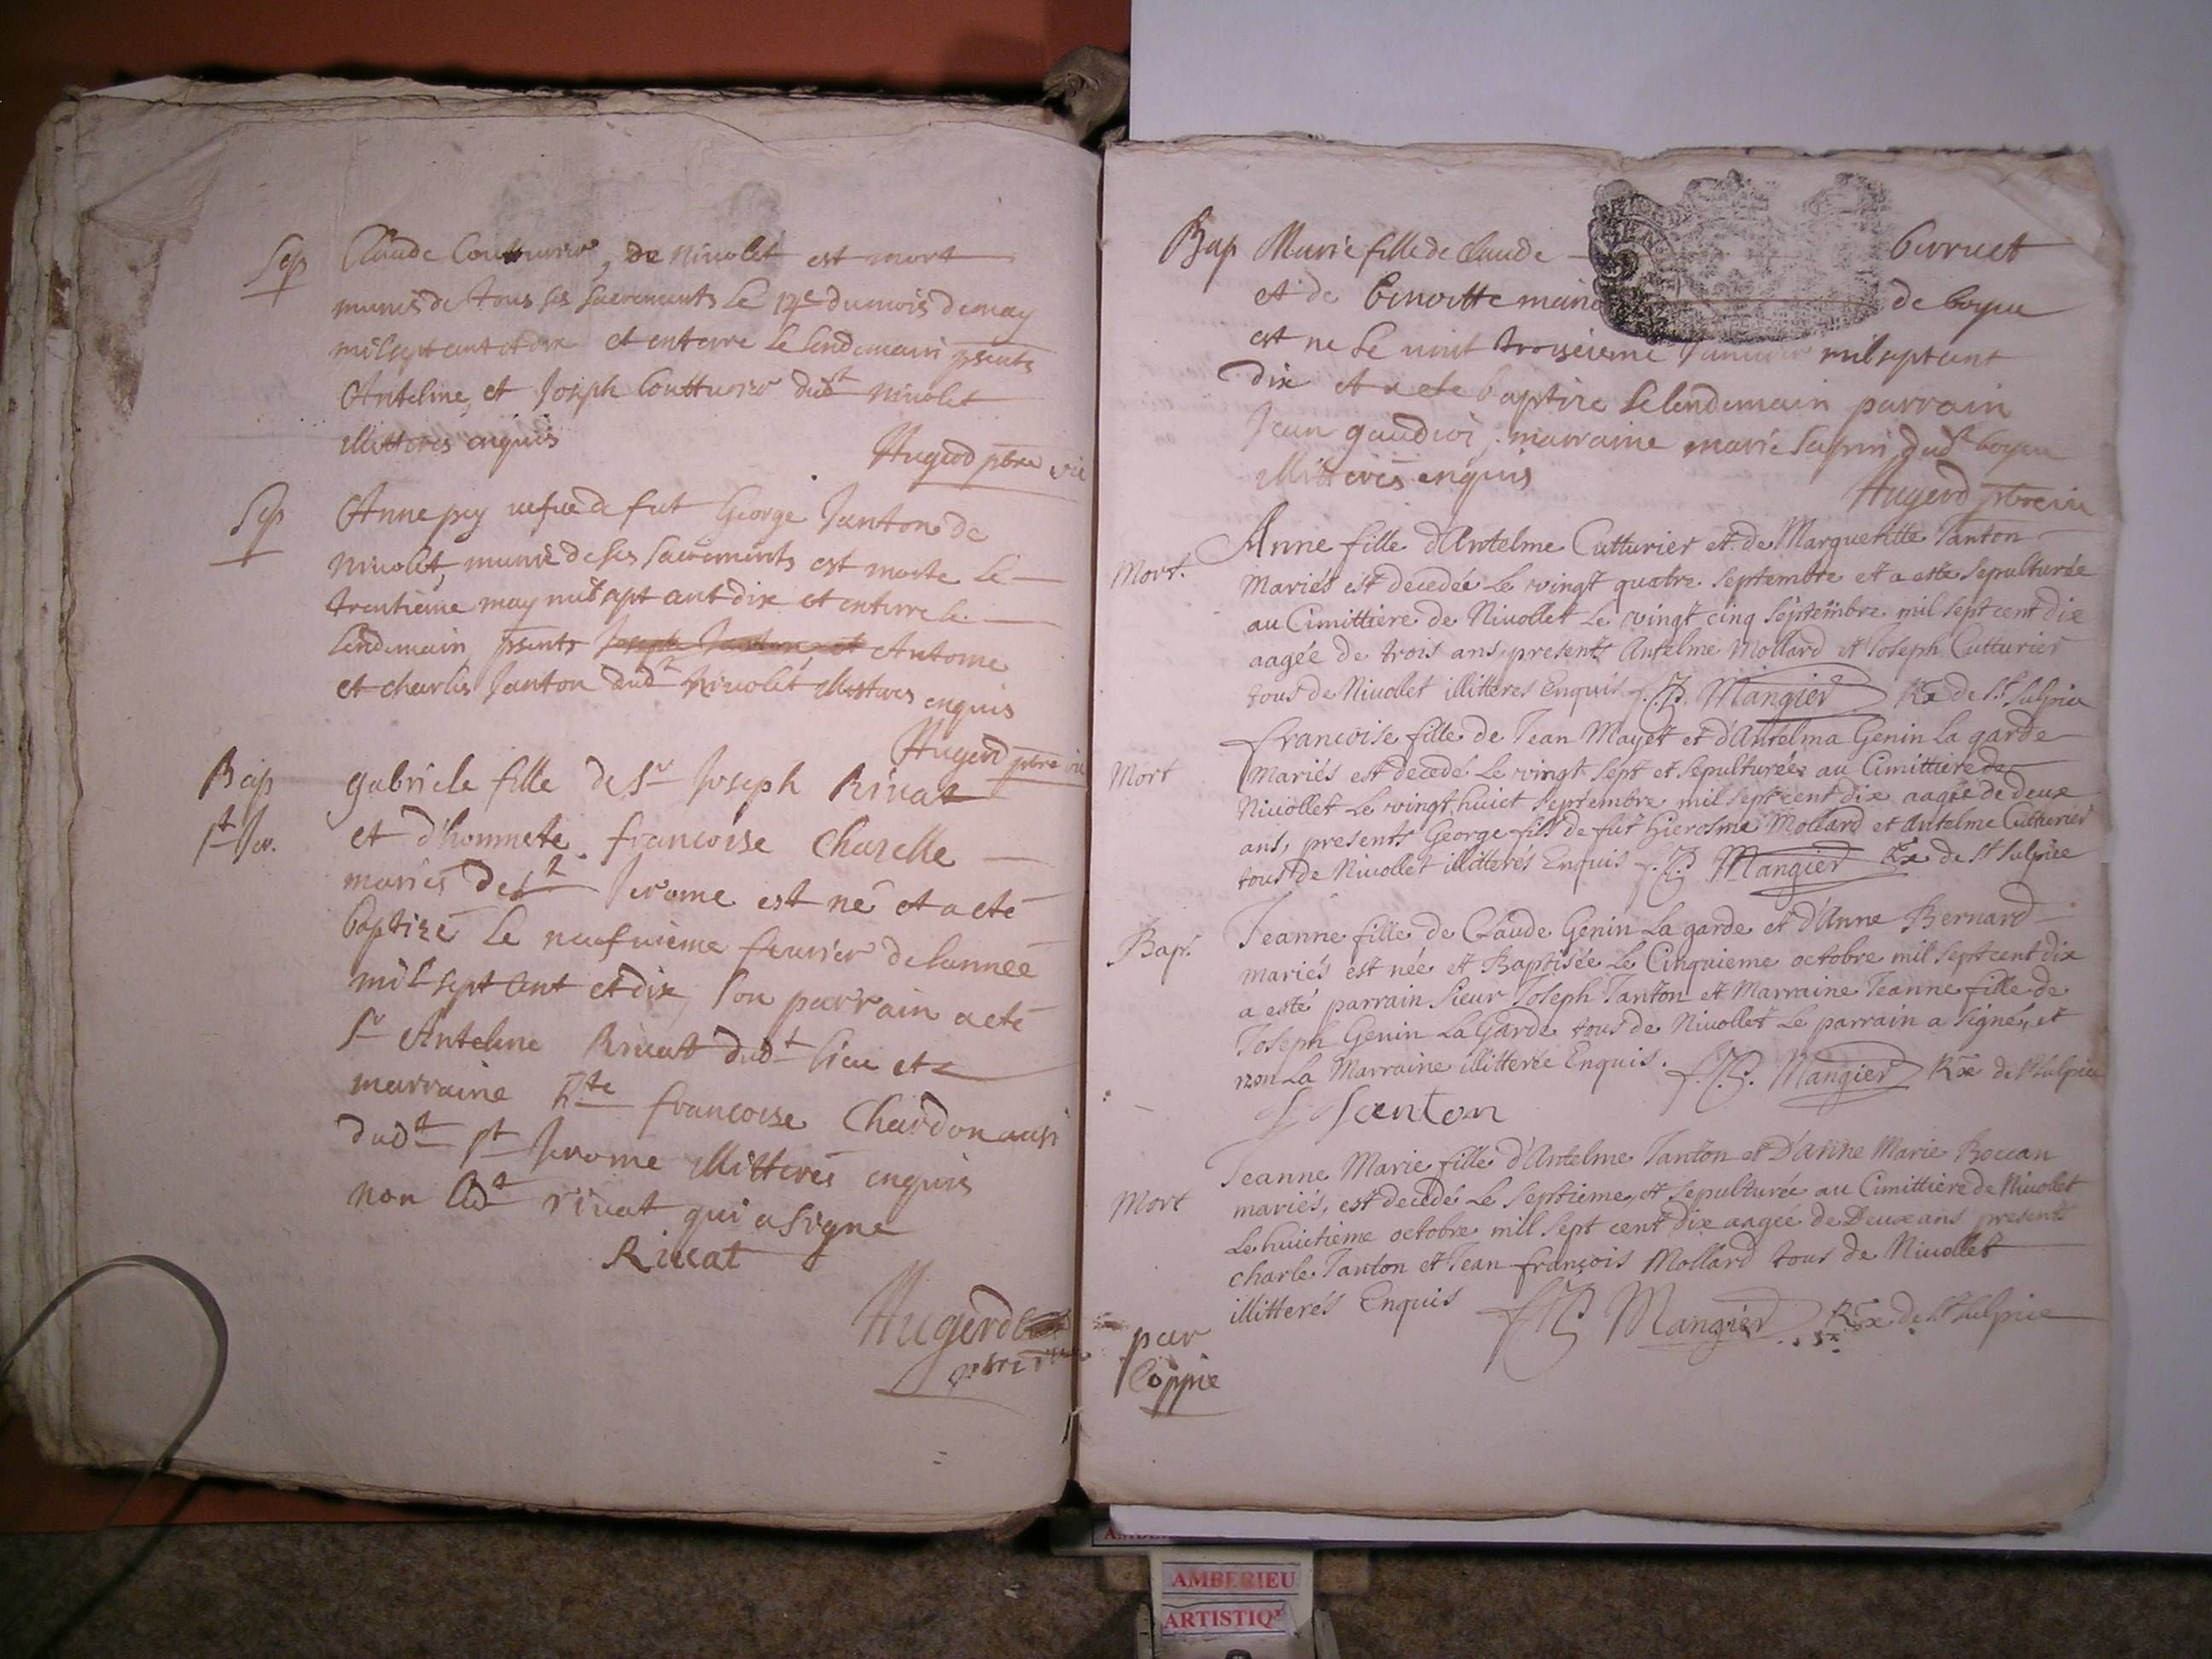 Sep Claude Coutturier, de nivolet est mort
munis de tous ses sacrements le du mois de may
mil sept cent et dix et enterre le lendemain psents
Antelme, et Joseph Coutturier dudt nivolet
illitteres enquis
Hugerd pbre vic
Sep Anne pey vefue de fut George Janton de
nivolet, munie de ses sacrements est morte le
trentieme may mil sept cent dix et enterre le
lendemain psents Joseph Janton et Antoine
et charles Janton dudt nivolet illitteres enquis
Hugerd pbre vic
Bap gabriele fille de Sr Joseph Rivat
St Jer. et d'honnete francoise Charelle
maries de St Jerome est né et a eté
baptizé le neufvieme fevrier de lannéé
mil sept cent et dix, son parrain a eté
Sr Antelme Rivat dudt lieu et
marraine hte francoise Chardon aussi
dudt St Jerome illitterés enquis
non ledt rivat qui a signe
Rivat
Hugerd
pbre vic
Bap Marie fille de Claude berruet
et de benoitte de boyeu
est ne le vint troiseieme Janvier mil sept cent
dix et a ete baptize le lendemain parrain
Jean gaudioz, marraine marie dudt boyeu
illitterés enquis
Hugerd pbre vic
Anne fille d'Antelme Cutturier et de Marguetitte Janton
Mort. Mariés est decedée Le vingt quatre Septembre et a esté Sepulturée
au Cimittiere de Nivollet Le vingt cinq Septembre mil sept cent dix
aagée de trois ans, presents Antelme Mollard et Joseph Cutturier
tous de Nivollet illitteres Enquis f. Mangier de St Sulpice
francoise fille de Jean Mayet et d'Antelma Genin La garde
Mort Mariés est decedé Le vingt Sept et Sepulturée au Cimittiere de
Nivollet Le vingt huict Septembre mil sept cent dix aagée de deux
ans, presents George fils de fut Gierosme Mollard et Antelme Cutturier
tous de Nivollet illitterés Enquis f. Mangier de St Sulpice
Jeanne fille de Claude Genin La garde et d'Anne Bernard
Bap. mariés est née et Baptisée Le Cinquieme octobre mil sept cent dix
a esté parrain Sieur Joseph Janton et Marraine Jeanne fille de
Joseph Genin La Garde tous de Nivollet Le parrain a signé, et
non La Marraine illitterée Enquis. f. Mangier de St Sulpice
Janton
Jeanne Marie fille d'Antelme Janton et D'anne Marie Boccan
Mort mariés, est decedé Le Septieme, et Sepulturée au Cimittiere de Nivollet
Le huictieme octobre mil sept cent dix aagée de Deux ans presents
charle Janton et Jean françois Mollard tous de Nivollet
illitterés Enquis f. Mangier de St Sulpice
par
Coppie
AMBERIEU
ARTISTIQ